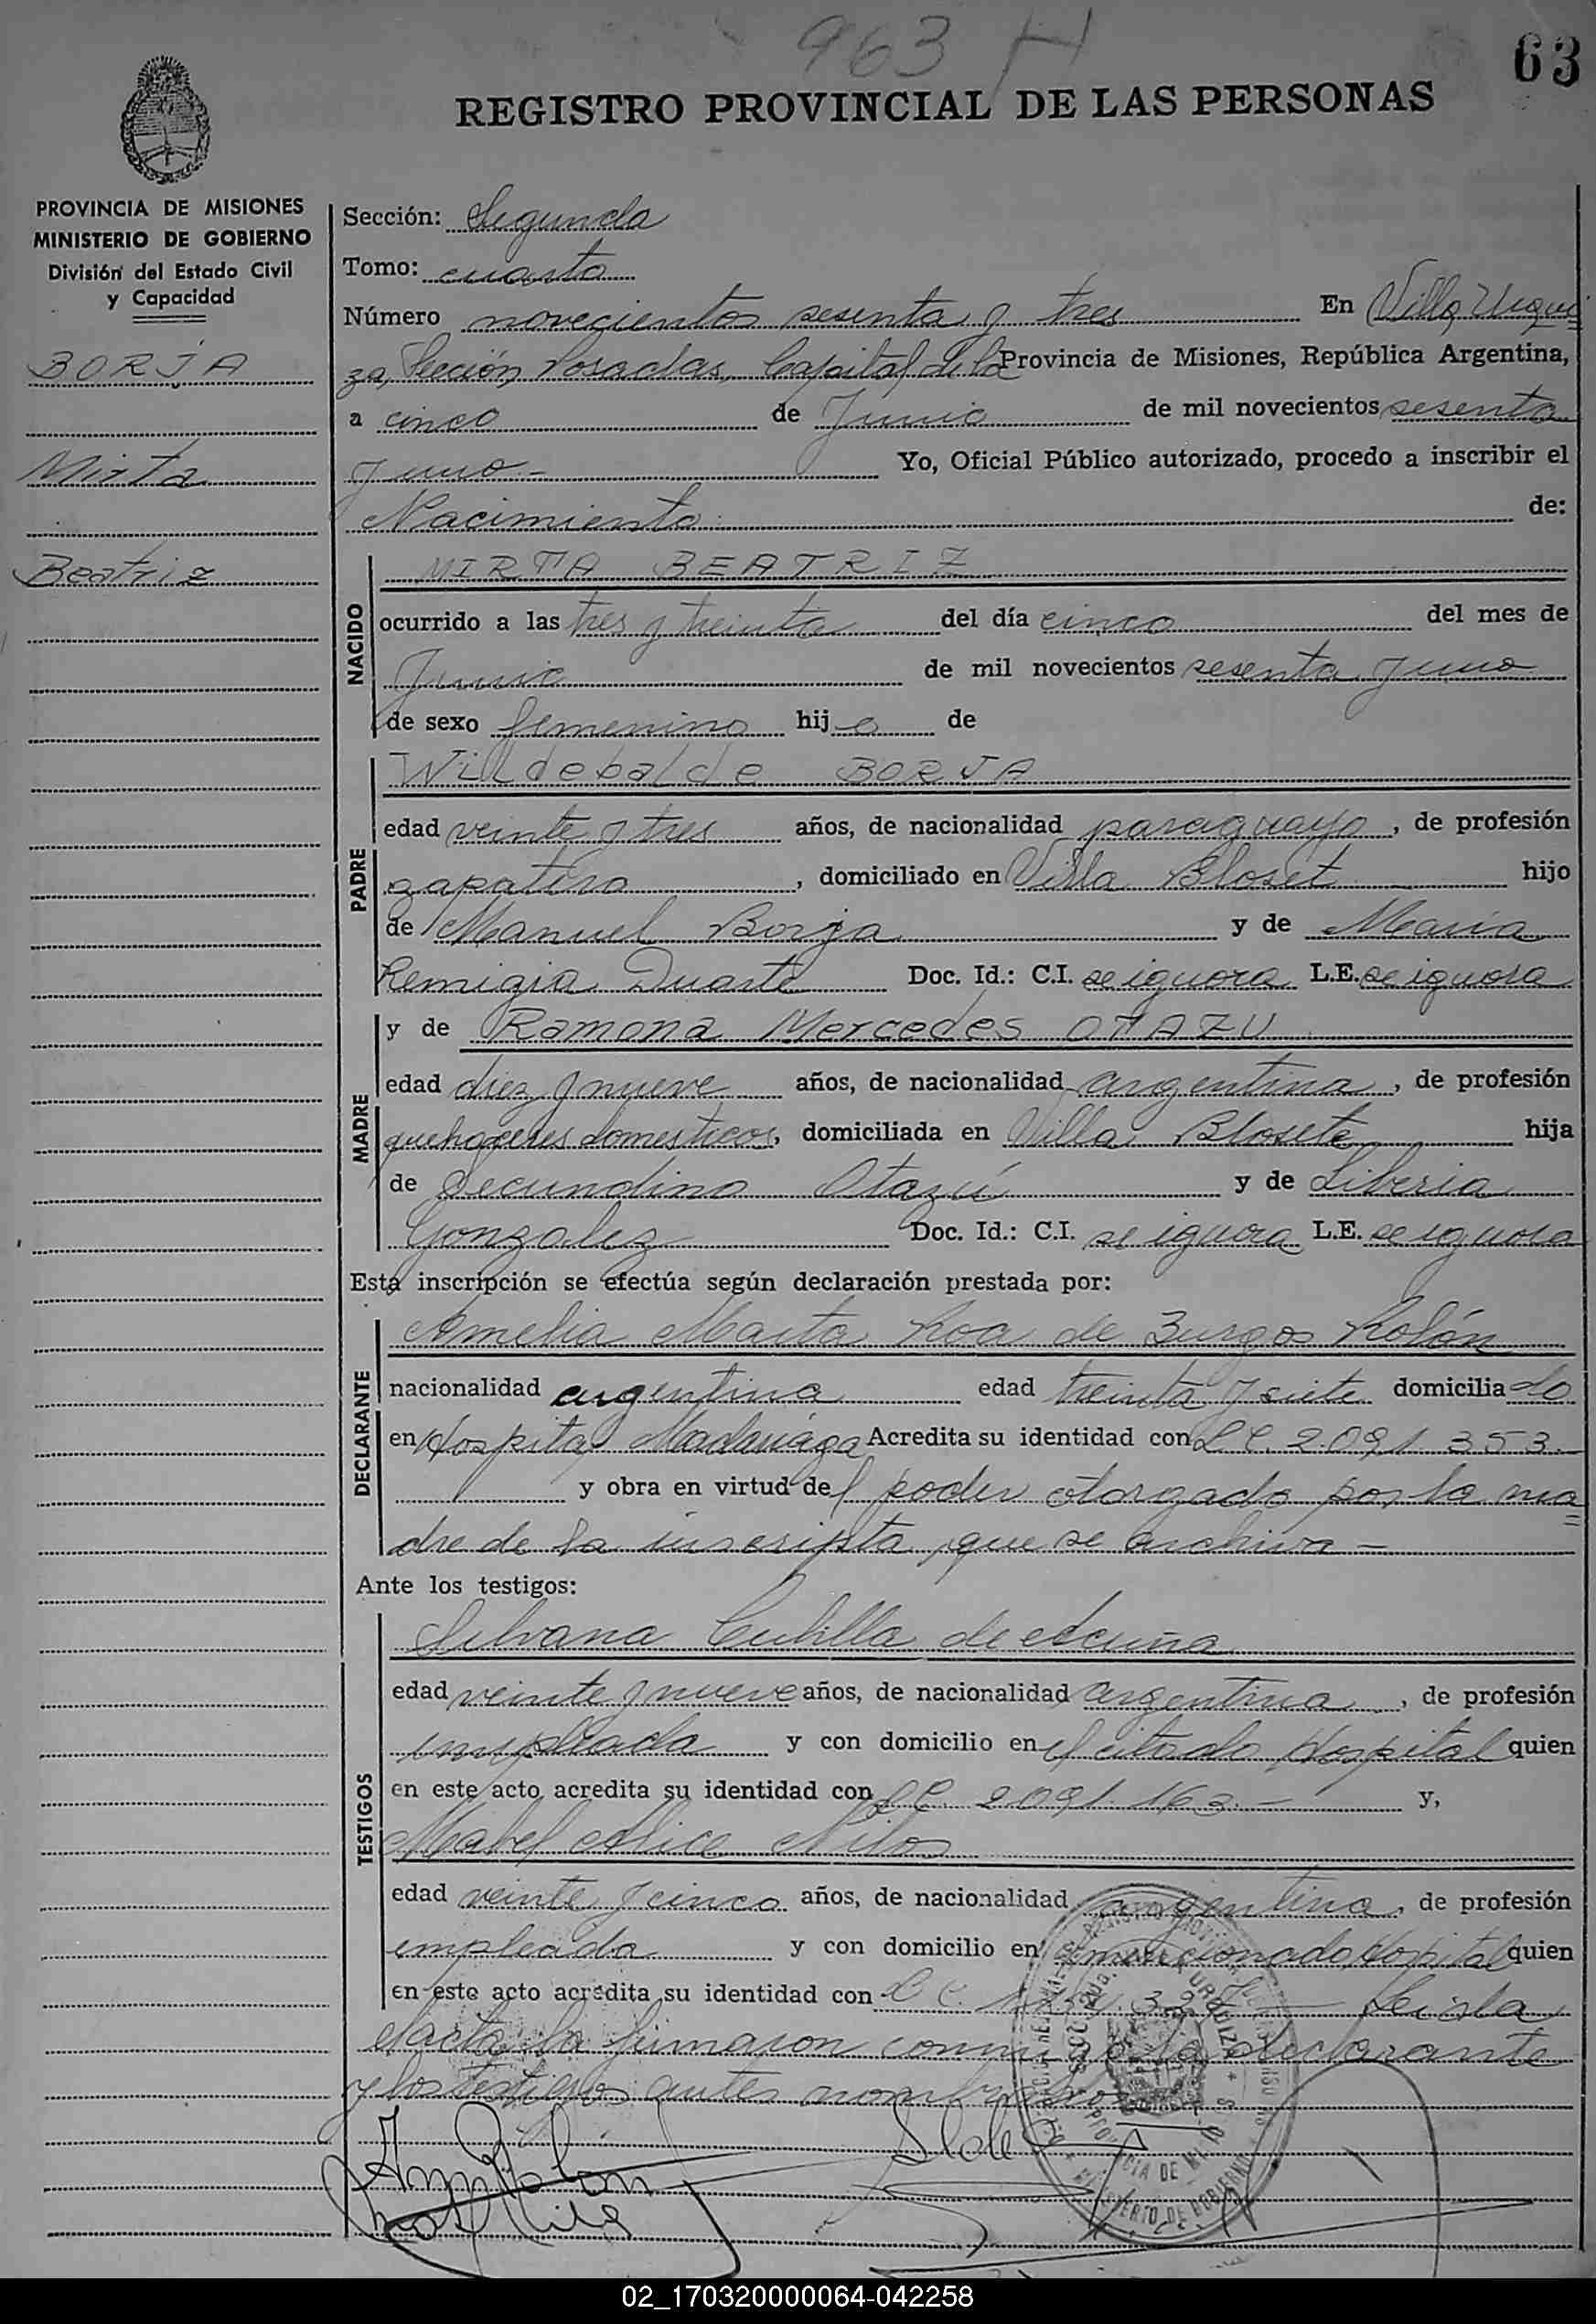 963 H
63
REGISTRO PROVINCIAL DE LAS PERSONAS
PROVINCIA DE MISIONES
MINISTERIO DE GOBIERNO
División del Estado Civil
y Capacidad
BORJA
Mirta
Beatriz
Sección: Segunda
Tomo: cuarto
Número novecientos sesenta y tres En Villa Urqui
za, Sección Posadas, Capital de la Provincia de Misiones, República Argentina,
a cinco de Junio de mil novecientos sesenta
y uno.- Yo, Oficial Público autorizado, procedo a inscribir el
Nacimiento de:
NACIDO
MIRTA BEATRIZ
ocurrido a las tres y treinta del día cinco del mes de
Junio de mil novecientos sesenta y uno
de sexo femenino hij a de
PADRE
Wildebalde BORJA
edad veinte y tres años, de nacionalidad paraguayo, de profesión
zapatero, domiciliado en Villa Bloset hijo
de Manuel Borja y de María
Remigia Duarte Doc. Id.: C.I. se ignora L.E. se ignora
MADRE
y de Ramona Mercedes OTAZU
edad diez y nueve años, de nacionalidad argentina, de profesión
quehaceres domesticos, domiciliada en Villa Blosete hija
de Secundino Otazú y de Liberia
Gonzalez Doc. Id.: C.I. se ignora L.E. se ignora
Esta inscripción se efectúa según declaración prestada por:
DECLARANTE
Amelia Marta Roa de Burgos Rolón
nacionalidad argentina edad treinta y siete domicilia do
en Hospital Madariaga Acredita su identidad con L C. 2.091.353.-
y obra en virtud del poder otorgado por la ma
dre de la inscripta, que se archiva -
Ante los testigos:
TESTIGOS
Silvana Cubilla de Acuña
edad veinte y nueve años, de nacionalidad argentina, de profesión
empleada y con domicilio en el citado Hospital quien
en este acto acredita su identidad con LC. 2091.163.- y,
Mabel Alice Nilos
edad veinte y cinco años, de nacionalidad argentina, de profesión
empleada y con domicilio en mencionado Hospital quien
en este acto acredita su identidad con L C. Leida
el acta la firmaron conmigo la declarante
y los testigos antes nombrados
02_170320000064-042258